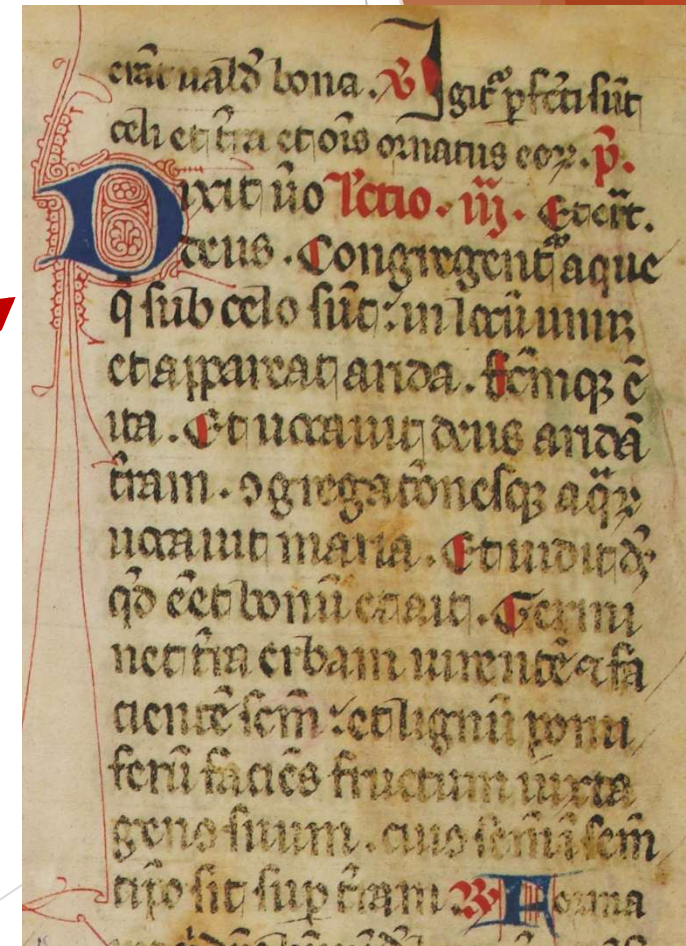 erāt ualđ bona. ℣ Igit᷑ ꝑfc̄ti sūt
celi et t̄ra et oīs ornatus eoꝝ. p̄.
Dixit ūo lectio. iij. Et erit.
deus. Congregent᷑ aque
q̄ sub celo sūt: in locū unū
et appareat arida. fc̄mqꝫ ē
ita. Et uocauit deus aridā
t̄ram. ꝯgregatōnesqꝫ aqͣꝝ
uocauit maria. Et uidit dꝰ
qđ eēt bonū et ait. Germi
net t̄ra erbam uirentē ⁊ fa
cientē sem̄: et lignū pomi
ferū faciēs fructum iuxta
genus suum. cuius sem̄
sit sup t̄ram ℞ Forma